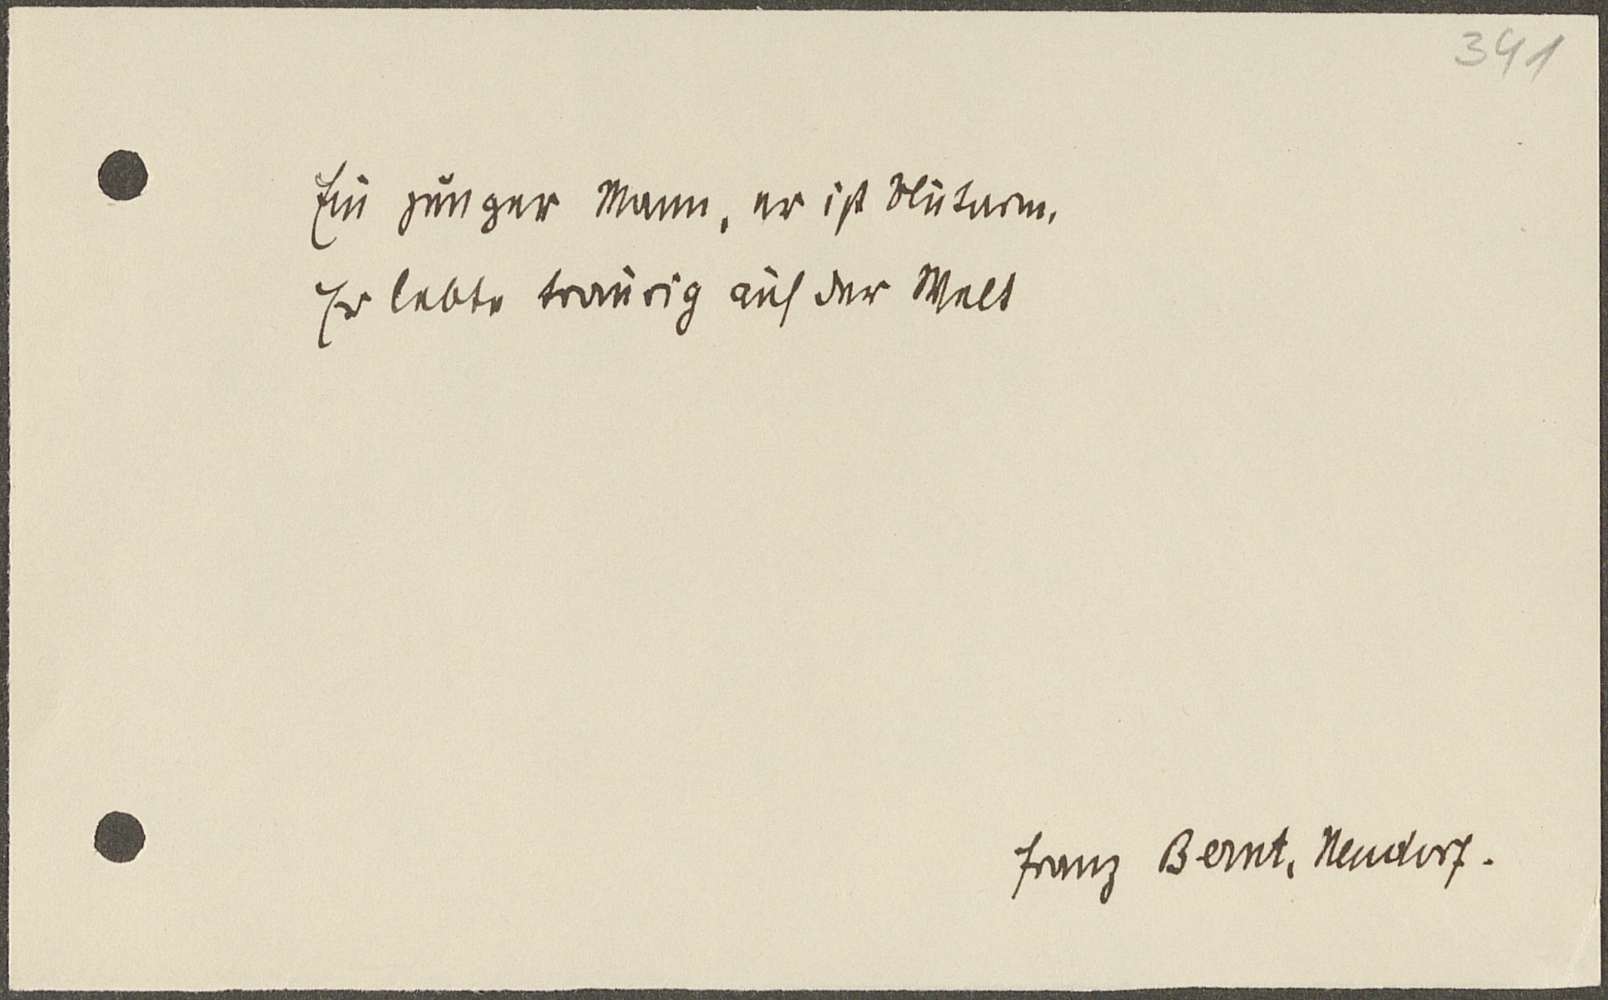 391
Ein junger Mann, er ist blutarm.
Er lebte traurig auf der Welt
Franz Bernt, Neudorf.